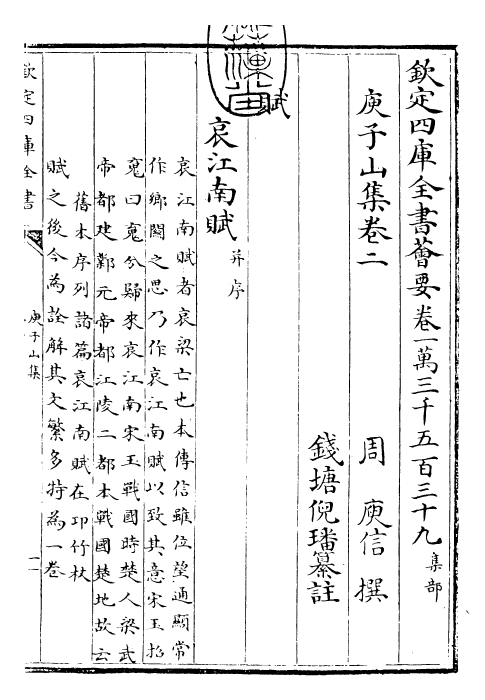 欽定四庫全書薈要卷一萬三千五百三十九 集部
庾子山集卷二
周 庾信 撰
錢塘倪璠纂註
賦
哀江南賦 并序
哀江南賦者哀梁亡也本傳信雖位望通顯常
作鄉關之思乃作哀江南賦以致其意宋玉招
䰟曰䰟兮歸來哀江南宋玉戰國時楚人梁武
帝都建鄴元帝都江陵二都本戰國楚地故云
舊本序列諸篇哀江南賦在邛竹杖
賦之後今為詮解其文繁多特為一卷
欽定四庫全書
庾子山集
一